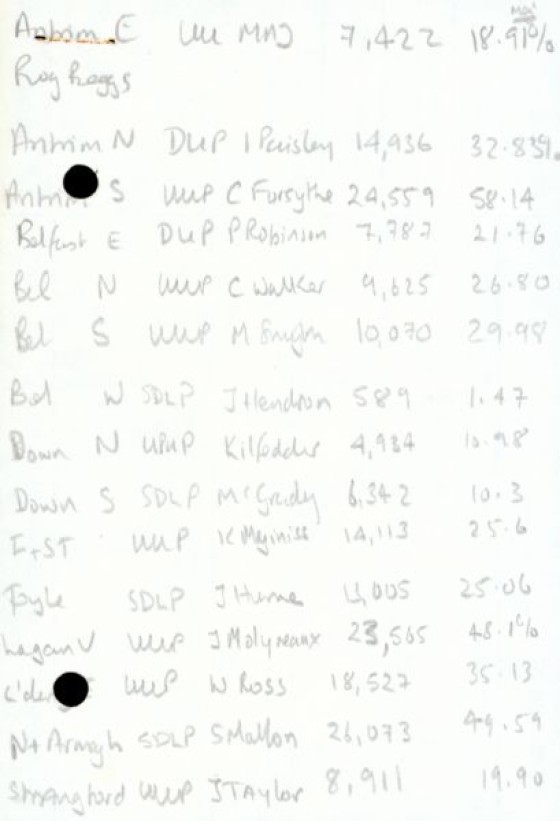 Antrim E UU MAJ 7,422 18.91%
Maj
Roy Beggs
Antrim N DUP I Paisley 14,936 32.83%
Antrim S UUP C Forsythe 24,559 58.14
Belfast E DUP P Robinson 7,787 21.76
Bel N UUP C Walker 9,625 26.80
Bel S UUP M Smyth 10,070 29.98
Bel W SDLP J Hendron 589 1.47
Down N UPUP Kilfedder 4,934 10.98
Down S SDLP McGrady 6,342 10.3
F+ST UUP K Maginiss 14,113 25.6
Foyle SDLP J Hume 25.06
Lagan V UUP J Molyneaux 23,565 48.1%
L'der UUP W Ross 18,527 35.13
N+Armagh SDLP S Mallon 26,073 49.59
Strangford UUP J Taylor 8,911 19.90